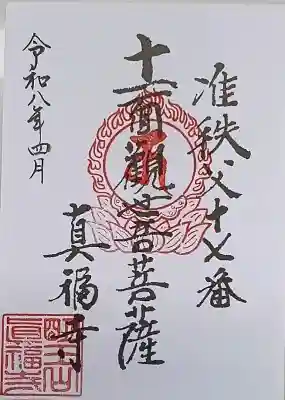 准秩父十七番
十一面観世音菩薩
真福寺
令和八年四月